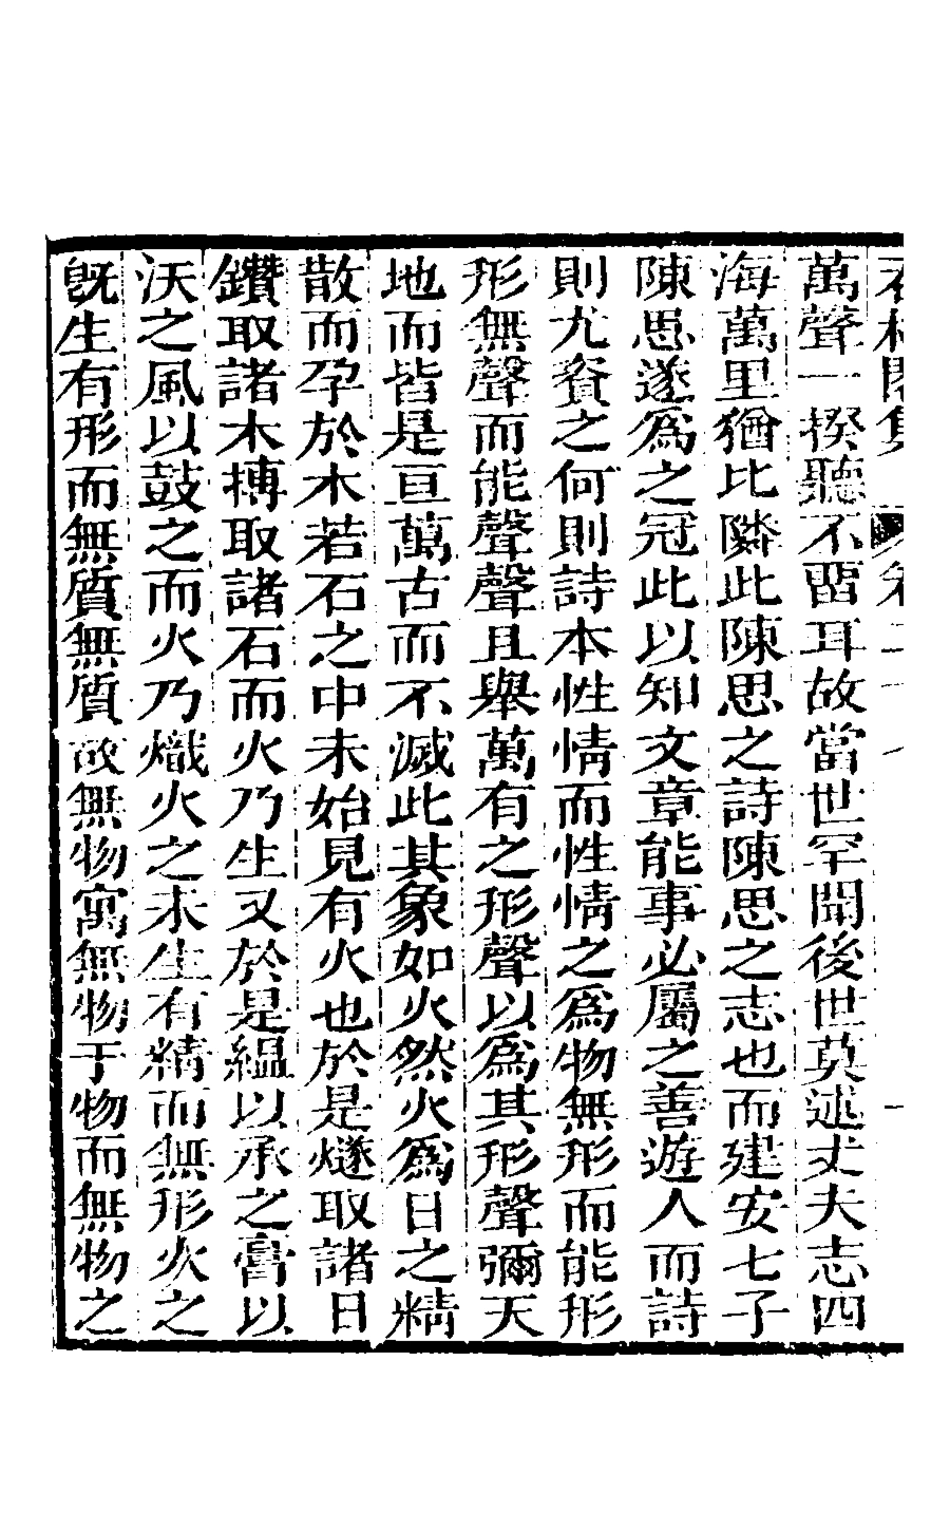 萬聲一揆聽不畱耳故當世罕聞後世莫述丈夫志四
海萬里猶比隣此陳思之詩陳思之志也而建安七子
陳思遂爲之冠此以知文章能事必屬之善遊人而詩
則尤資之何則詩本性情而性情之爲物無形而能形
形無聲而能聲聲且舉萬有之形聲以爲其形聲彌天
地而皆是亘萬古而不滅此其象如火然火爲日之精
散而孕於木若石之中未始見有火也於是燧取諸日
鑽取諸木搏取諸石而火乃生又於是縕以承之膏以
沃之風以鼓之而火乃熾火之未生有精而無形火之
旣生有形而無質無質故無物寓無物于物而無物之